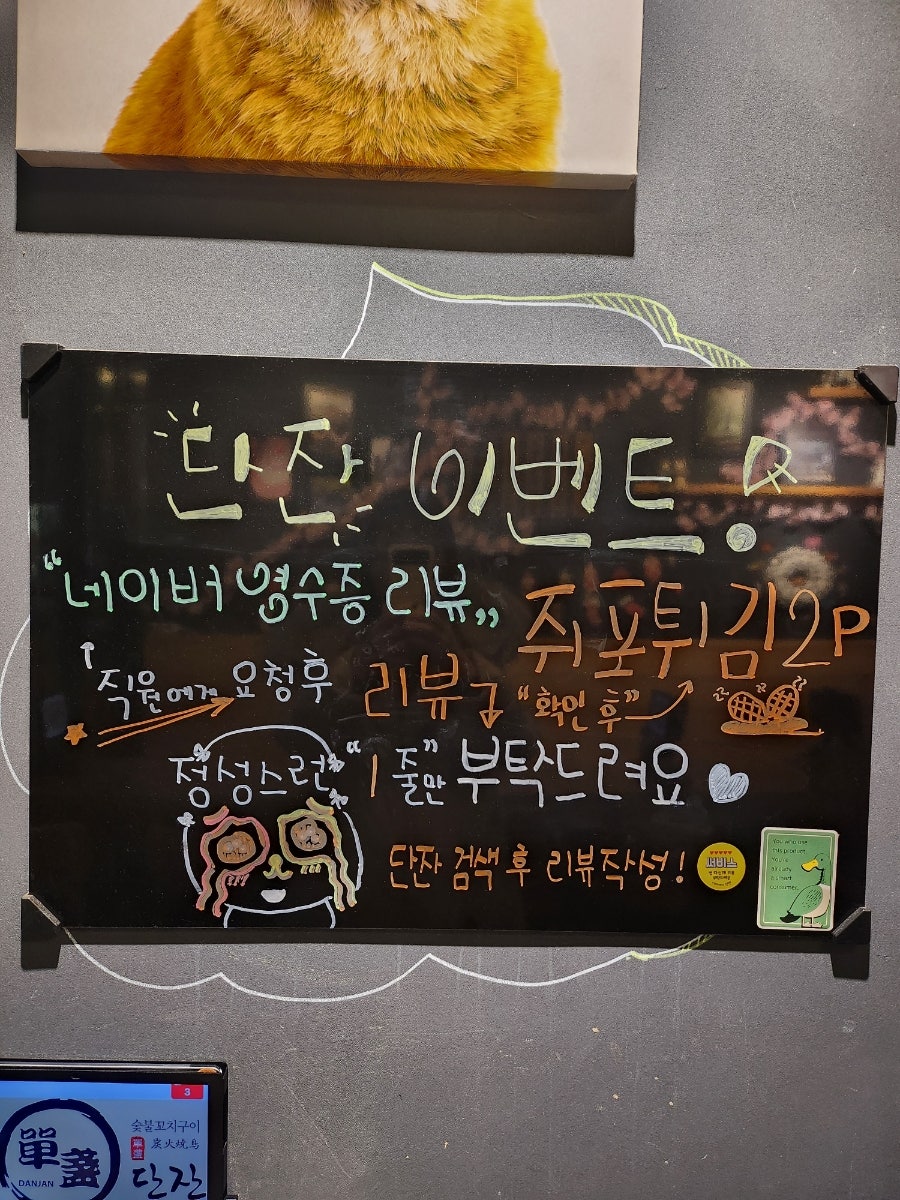 단잔 이벤트!
“네이버 영수증 리뷰”
쥐포튀김 2P
직원에게 요청후
리뷰 “확인 후”
정성스런 “1줄”만 부탁드려요
단잔 검색 후 리뷰작성!
서비스
You who me
3
숯불꼬치구이
單盞
炭火燒鳥
單盞
DANJAN
단잔